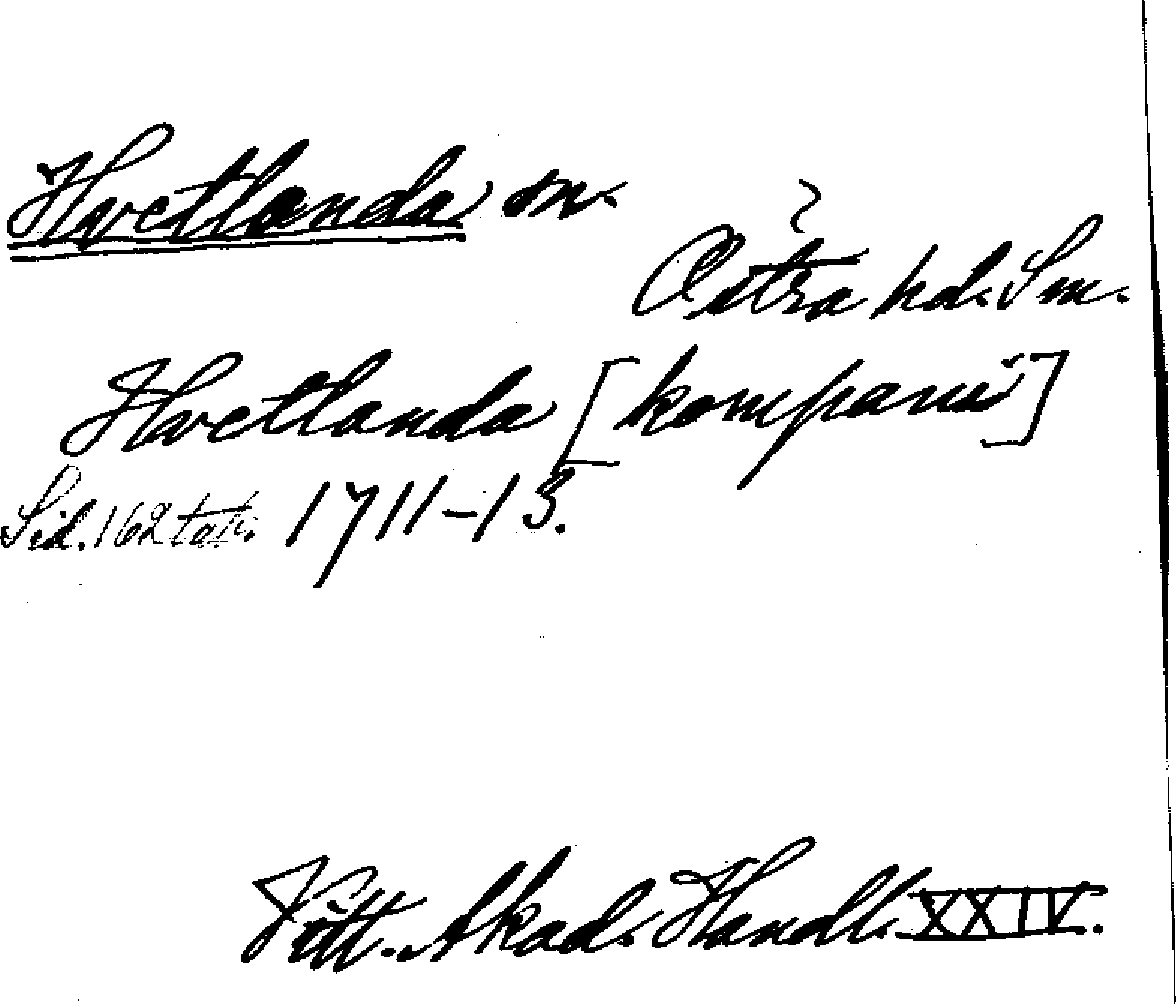 Hvetlanda sn.
Östra hd. Sm.
Hvetlanda [kompani]
Sid. 162 tab. 1711–13.
Vitt. Akad. Handl. XXIV.